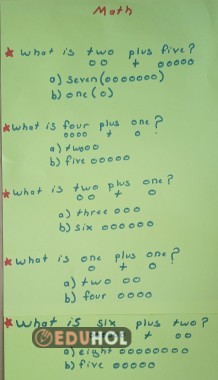 Math
* What is two plus five?
oo + ooooo
a) seven (ooooooo)
b) one (o)
* What is four plus one?
oooo + o
a) two oo
b) five ooooo
* What is two plus one?
oo + o
a) three ooo
b) six oooooo
* What is one plus one?
o + o
a) two oo
b) four oooo
* What is six plus two?
EDUHOL + oo
a) eight oooooooo
b) five ooooo